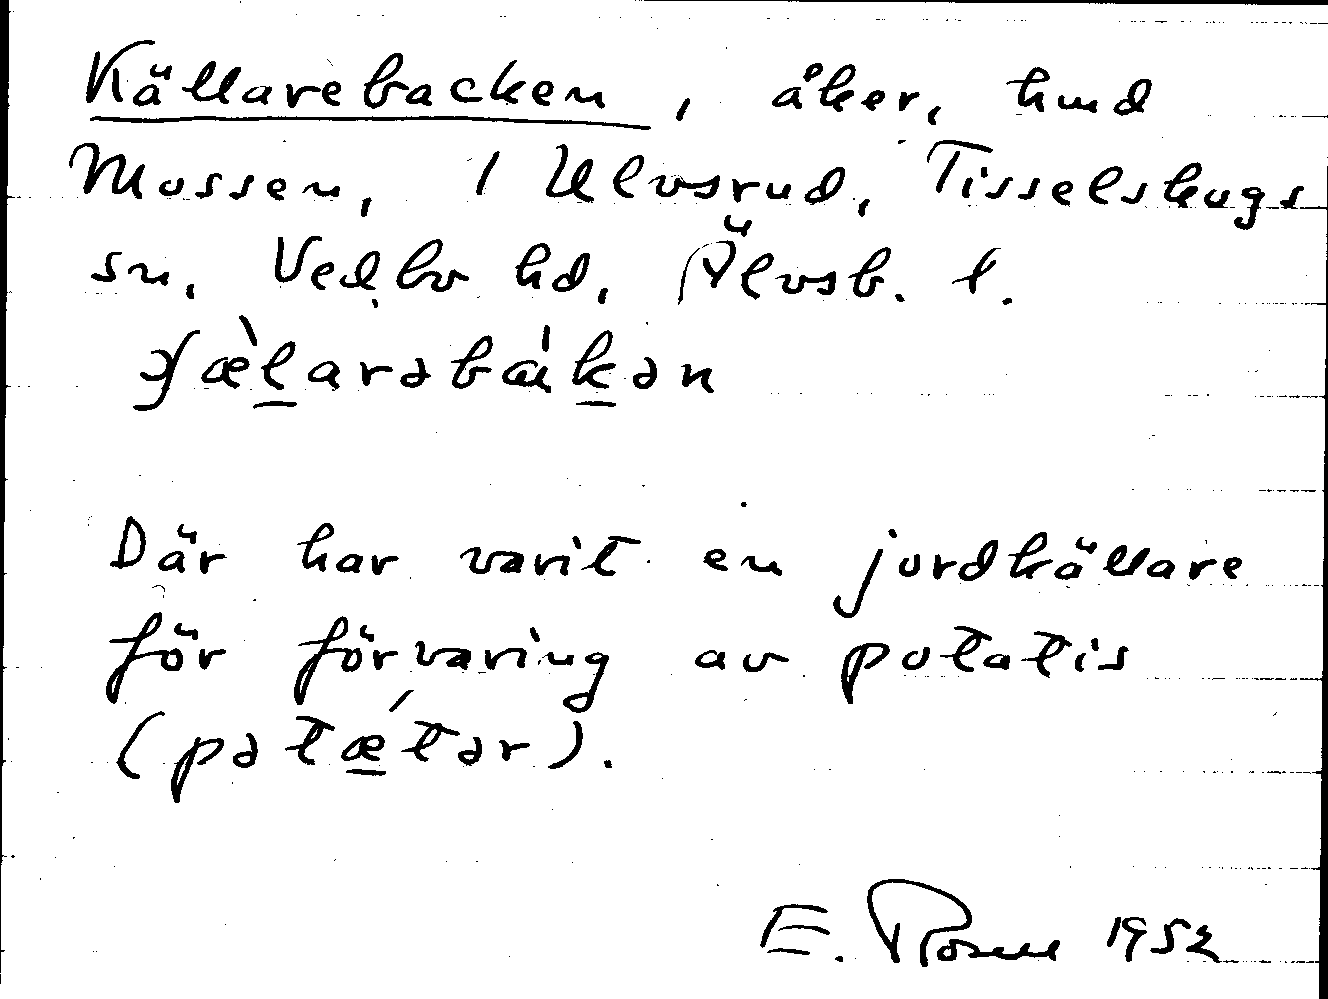 Källarebacken, åker, hmd
Mossen, 1 Ulvsrud, Tisselskogs
sn, Vedbo hd, Älvsb. l.
Där har varit en jordkällare
för förvaring av potatis
(pətǽtər).
E. Rosell 1952